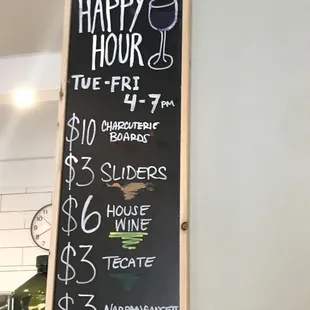 HAPPY
HOUR
TUE-FRI
4-7PM
$10 CHARCUTERIE
BOARDS
$3 SLIDERS
$6 HOUSE
WINE
$3 TECATE
$3 NARRAGANSETT